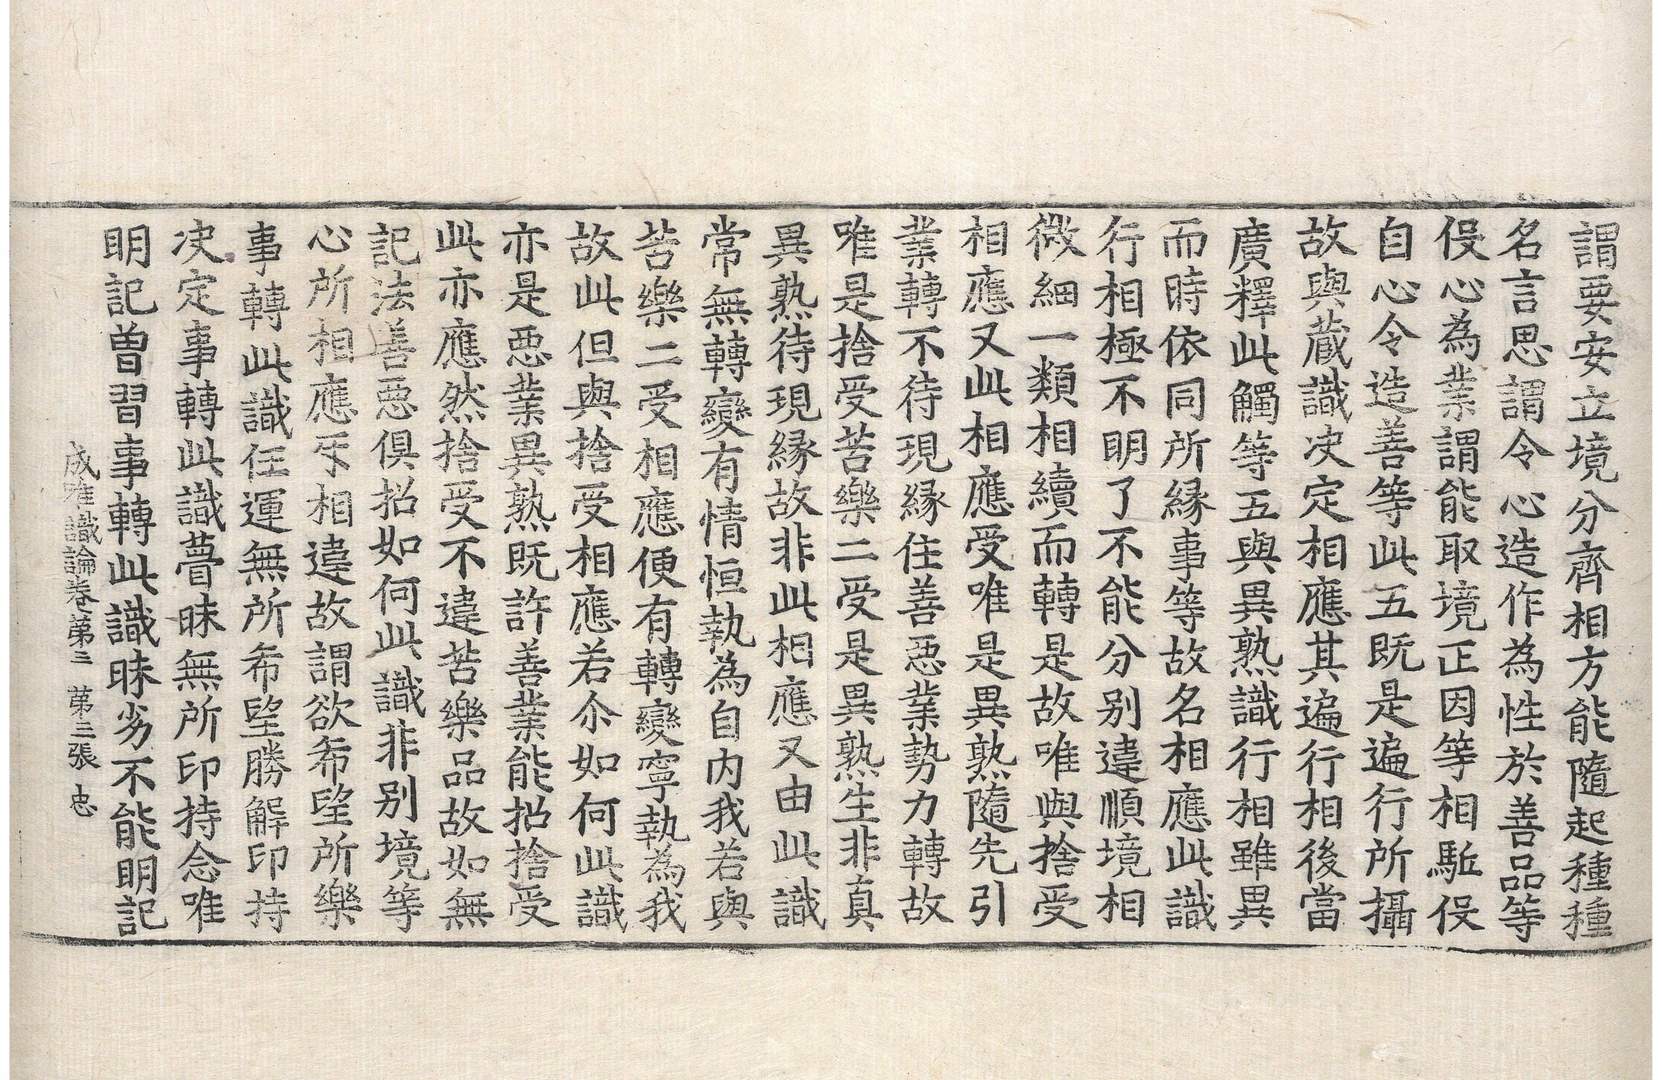 謂要安立境分齊相方能隨起種種
名言思謂令心造作為性於善品等
役心為業謂能取境正因等相駈役
自心令造善等此五既是遍行所攝
故與蔵識决定相應其遍行相後當
廣釋此觸等五與異熟識行相雖異
而時依同所縁事等故名相應此識
行相極不明了不能分别違順境相
微細一類相續而轉是故唯與捨受
相應又此相應受唯是異熟隨先引
業轉不待現縁住善惡業勢力轉故
唯是捨受苦樂二受是異熟生非真
異熟待現縁故非此相應又由此識
常無轉變有情恒執為自内我若與
苦樂二受相應便有轉變寧執為我
故此但與捨受相應若尒如何此識
亦是惡業異熟既許善業能招捨受
此亦應然捨受不違苦樂品故如無
記法善惡俱招如何此識非别境等
心所相應㸦相違故謂欲希望所樂
事轉此識任運無所希望勝解印持
决定事轉此識瞢昧無所印持念唯
明記曽習事轉此識昧劣不能明記
成唯識論卷第三 第三張 忠